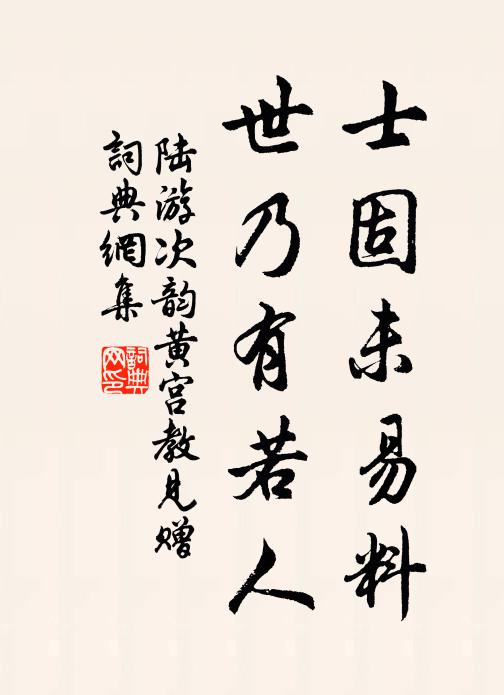 士固未易料
世乃有若人
陆游次韵黄宫教见赠
詞典網集
詞典
网印